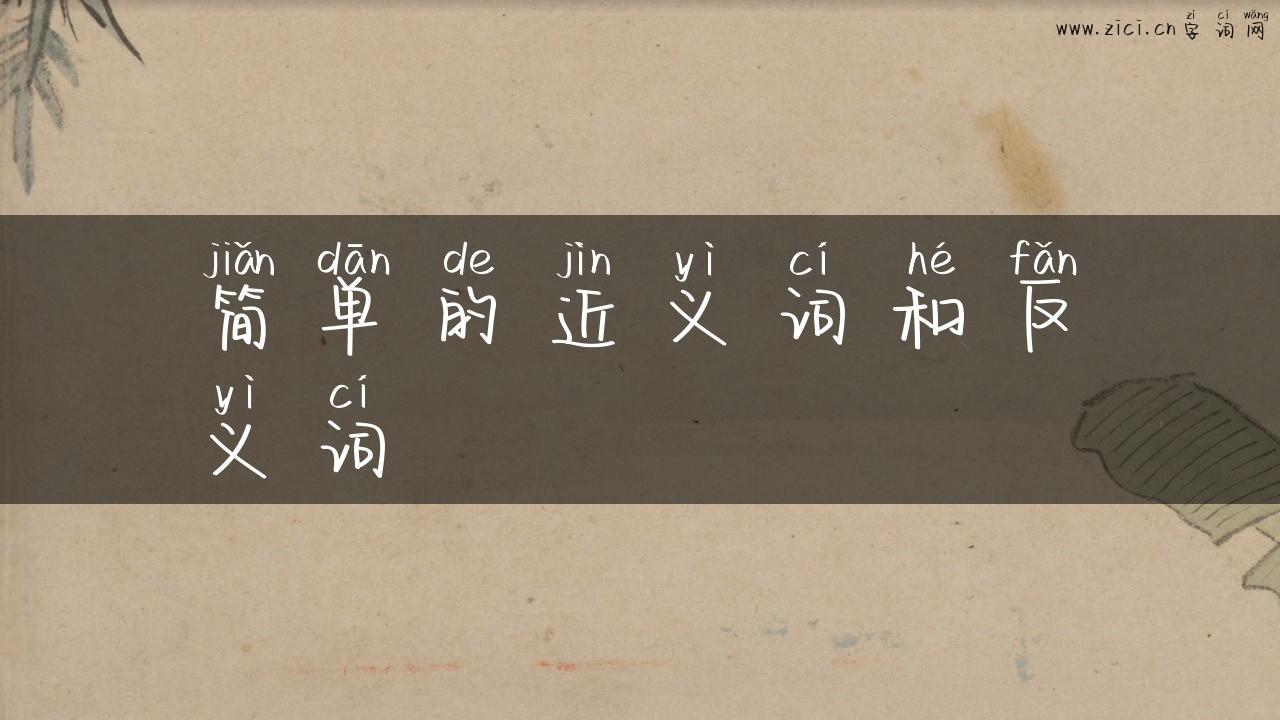 zì cí wǎng
www.zici.cn 字词网
jiǎn dān de jìn yì cí hé fǎn
简单的近义词和反
yì cí
义词